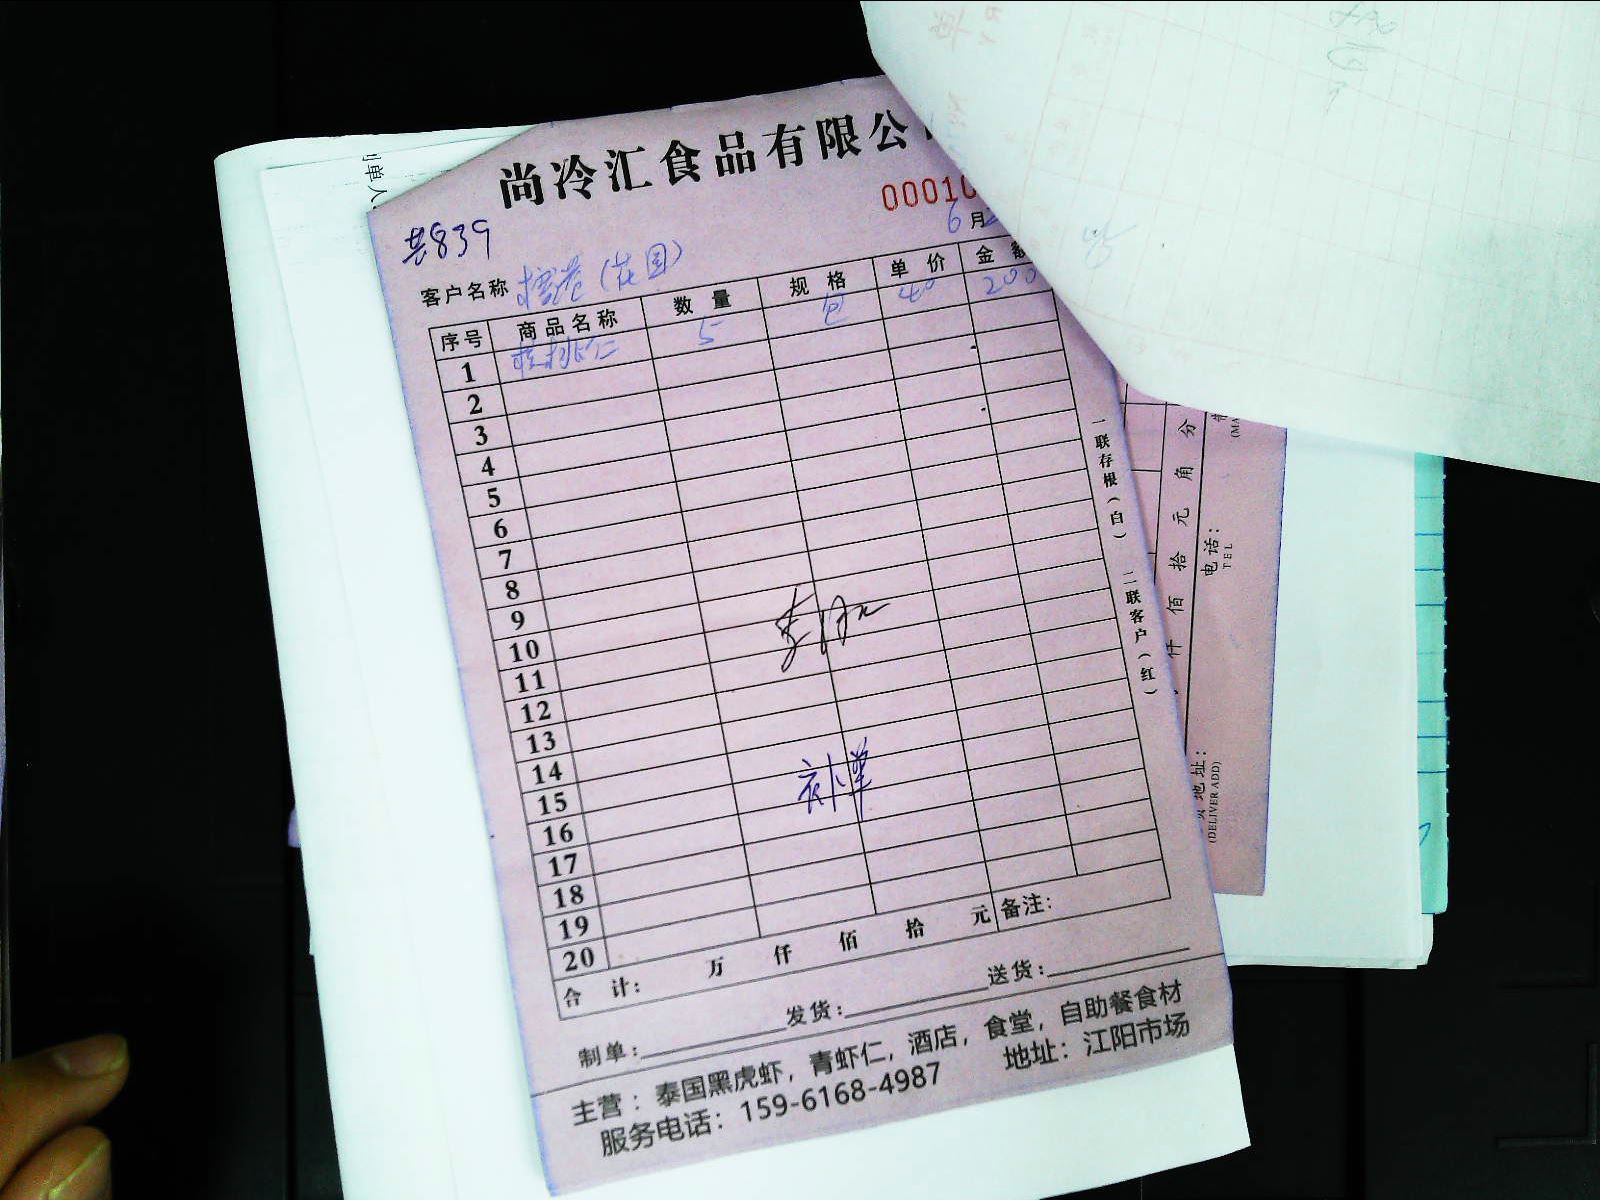 尚冷汇食品有限公
00010
共839
6月
客户名称 (花园)
序号 商品名称 数量 规格 单价 金额
1 核桃仁 5 包 40 200
2
3
4
5
6
7
8
9
10
11
12
13
14
15
16
17
18
19
20
合计: 万 仟 佰 拾 元 备注:
制单: 发货: 送货:
主营：泰国黑虎虾，青虾仁，酒店，食堂，自助餐食材
服务电话：159-6168-4987 地址：江阳市场
一联存根(白) 二联客户(红)
仟佰拾元角分
电话:
TEL
地址:
(DELIVER ADD)
(MA
单人